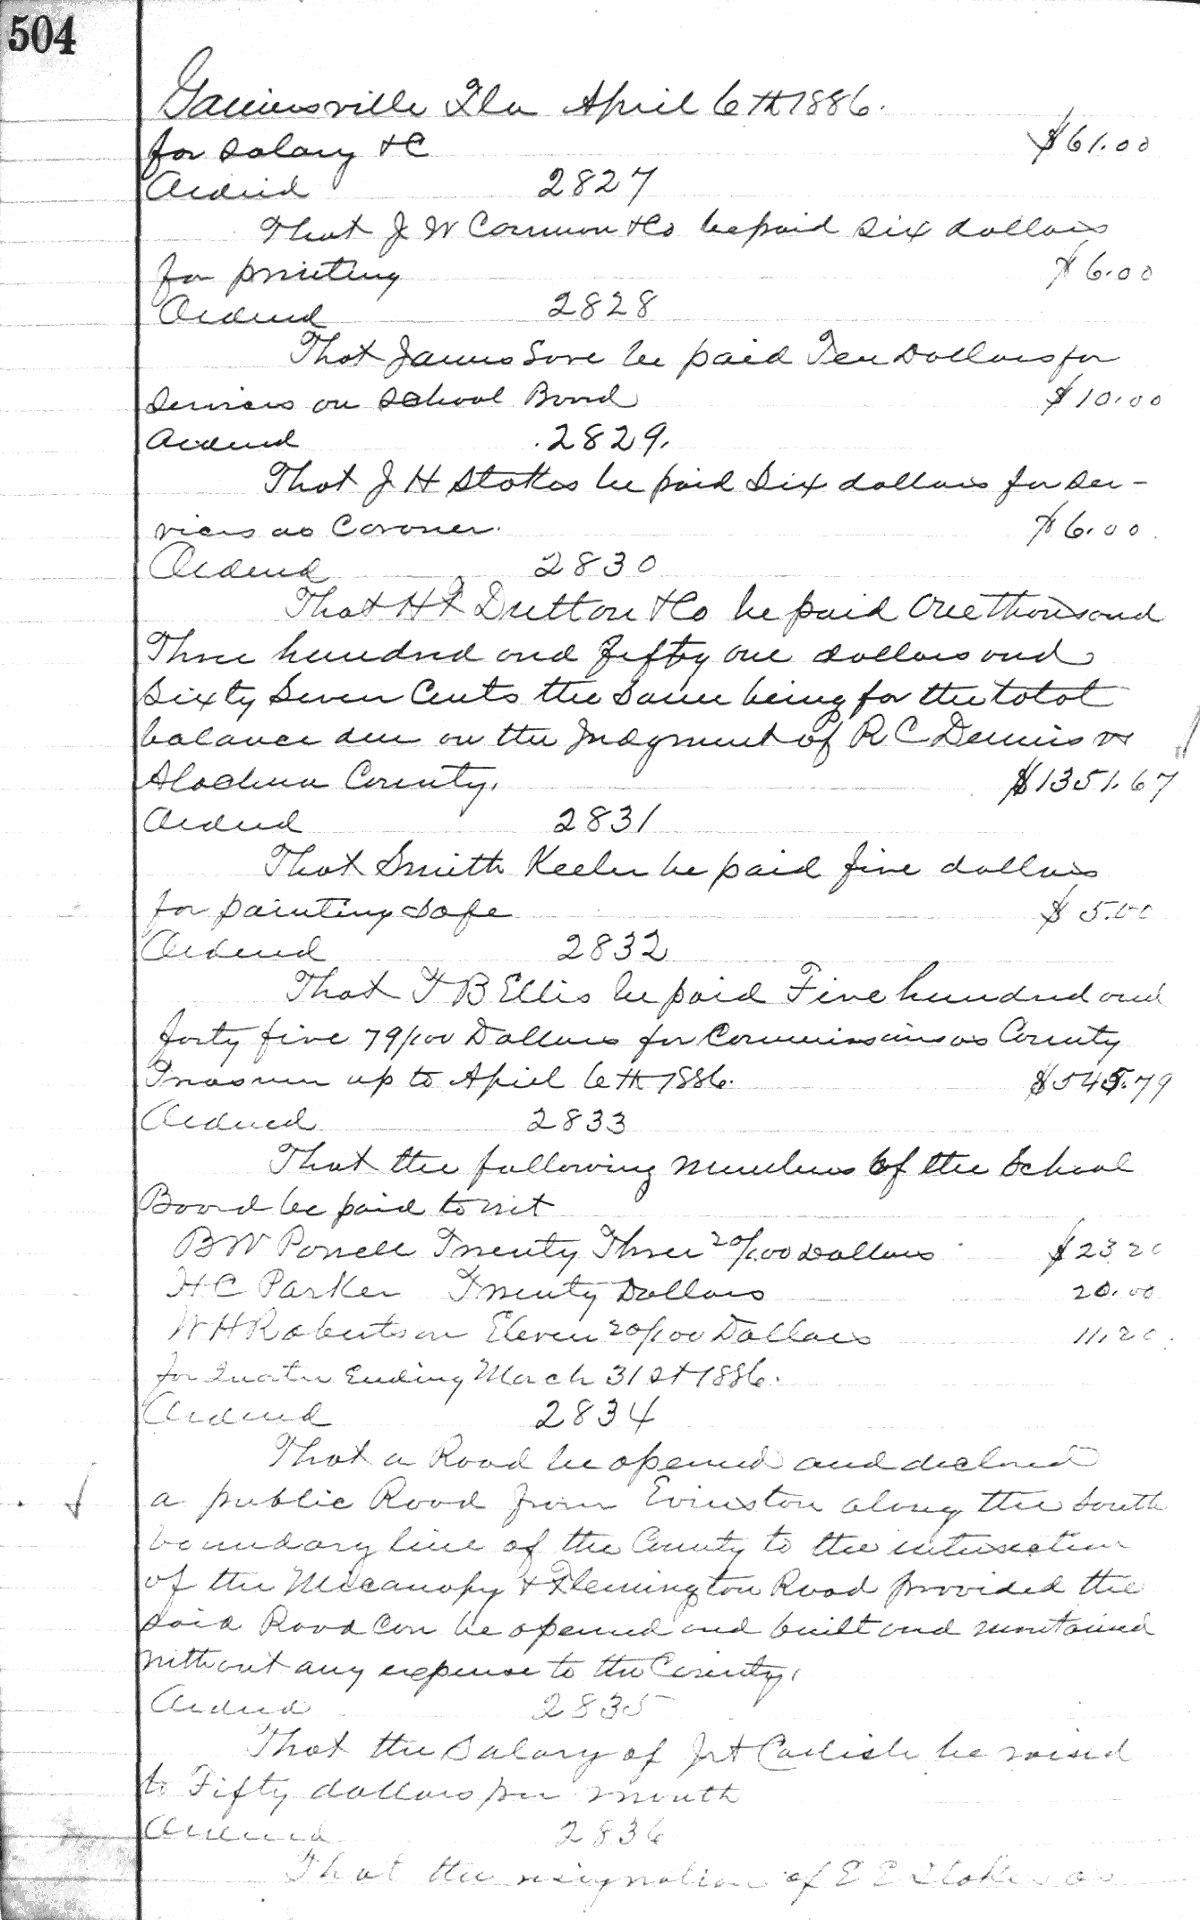 504
Gainesville Fla April 6th 1886.
for salary &C $61.00
Ordered 2827
That J W Cannon & Co be paid six dollars
for printing $6.00
Ordered 2828
That James Sore be paid Ten Dollars for
services on School Board $10.00
Ordered 2829.
That J H Stokes be paid Six dollars for ser-
vices as Coroner. $6.00.
Ordered 2830
That H F Dutton & Co be paid One thousand
Three hundred and fifty one dollars and
Sixty Seven Cents the same being for the total
balance due on the Judgment of R C Dennis vs
Alachua County. $1351.67
Ordered 2831
That Smith Keeler be paid five dollars
for painting safe $5.00
Ordered 2832
That F B Ellis be paid Five hundred and
forty five 79/100 Dollars for Commissions as County
Treasurer up to April 6th 1886. $545.79
Ordered 2833
That the following members of the School
Board be paid to wit
B W Powell Twenty Three 20/100 Dollars $23.20
H C Parker Twenty Dollars 20.00
W H Robertson Eleven 20/100 Dollars 11.20.
for Quarter Ending March 31st 1886.
Ordered 2834
That a Road be opened and declared
a public Road from Evinston along the South
boundary line of the County to the intersection
of the Micanopy & Flemington Road provided the
said Road can be opened and built and maintained
without any expense to the County.
Ordered 2835
That the Salary of Carlisle be raised
to Fifty dollars per month
Ordered 2836
That the resignation of E E Stokes as